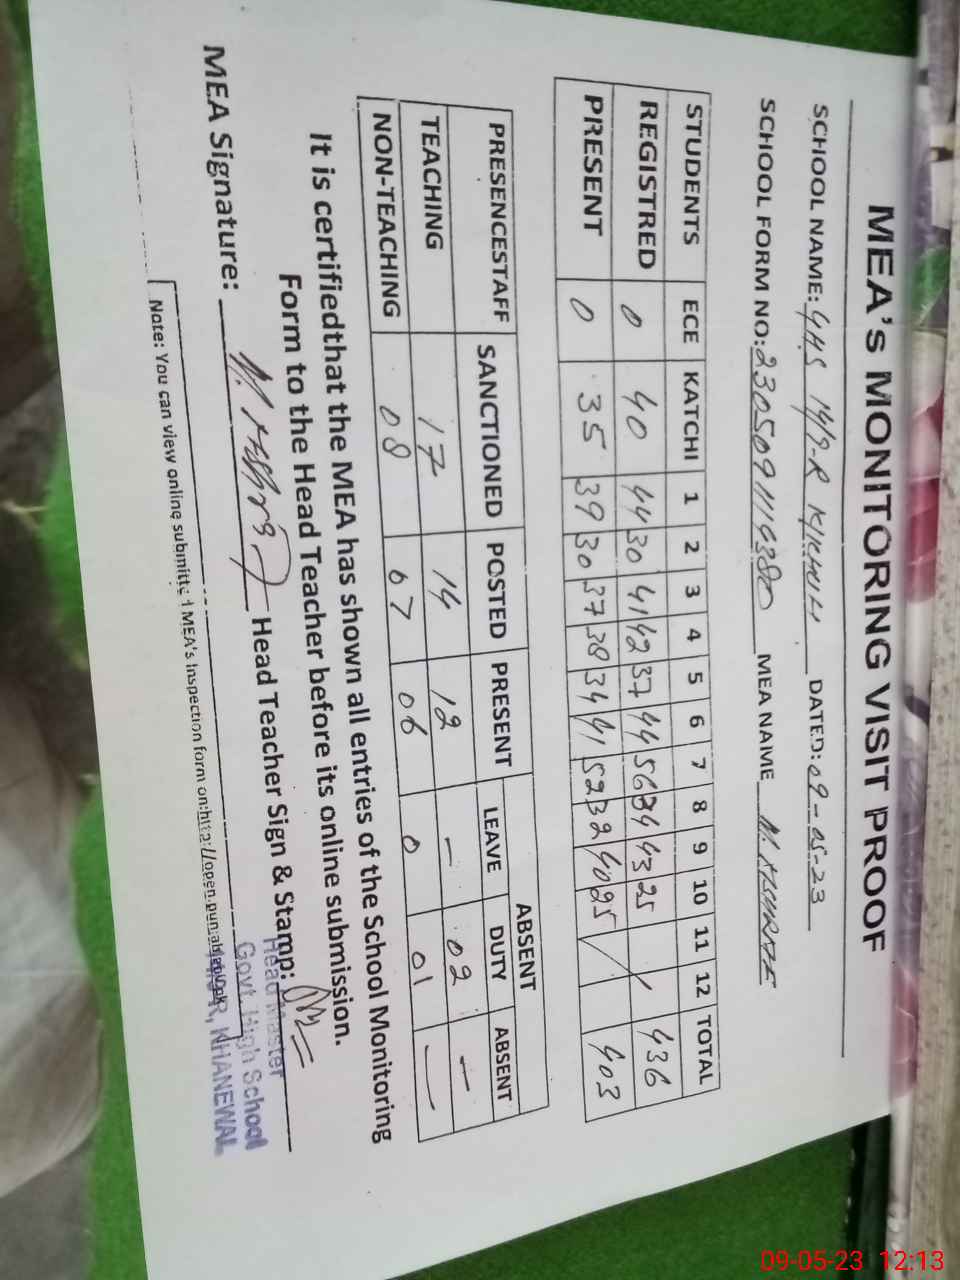 MEA's MONITORING VISIT PROOF
SCHOOL NAME: GHS 14/9-R DATED: 09-05-23
SCHOOL FORM NO: MEA NAME
STUDENTS ECE KATCHI 1 2 3 4 5 6 7 8 9 10 11 12 TOTAL
REGISTRED 0 40 44 30 41 42 37 44 56 34 43 25 436
PRESENT 0 35 39 30 37 38 34 41 52 32 40 25 403
PRESENCESTAFF SANCTIONED POSTED PRESENT ABSENT
LEAVE DUTY ABSENT
TEACHING 17 14 12 - 02 -
NON-TEACHING 08 07 06 0 01 -
It is certifiedthat the MEA has shown all entries of the School Monitoring
Form to the Head Teacher before its online submission.
MEA Signature: Head Teacher Sign & Stamp:
Head Master
Govt. High School
KHANEWAL
Note: You can view online submitted MEA's Inspection form on:
09-05-23 12:13